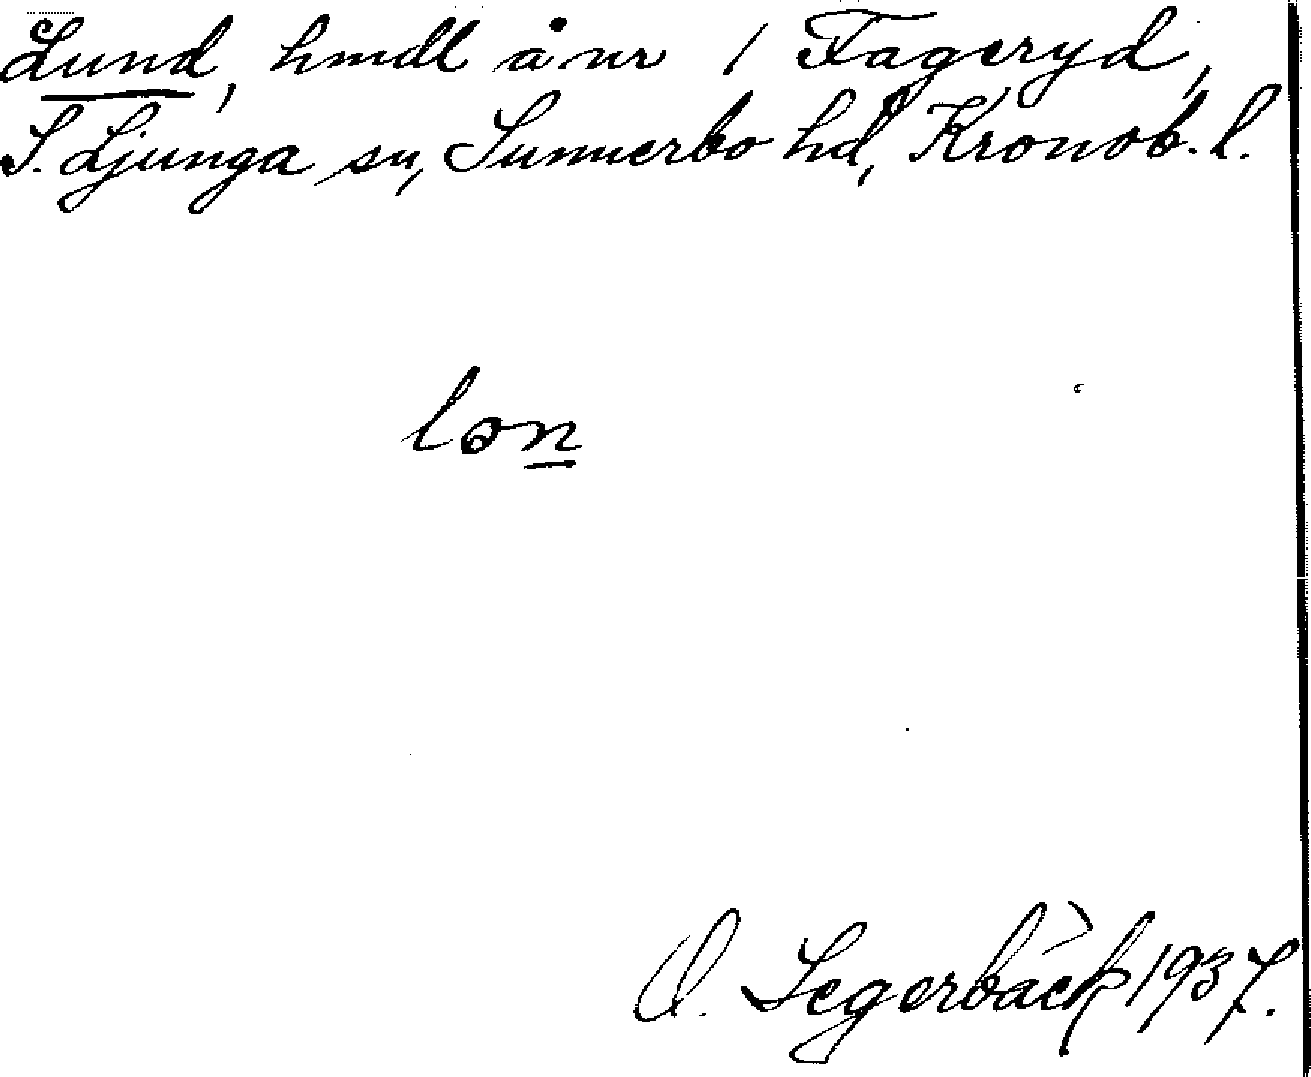 Lund, hmdl å nr 1 Fageryd,
S. Ljunga sn, Sunnerbo hd, Kronob. l.
lon
O. Segerbäck 1937.